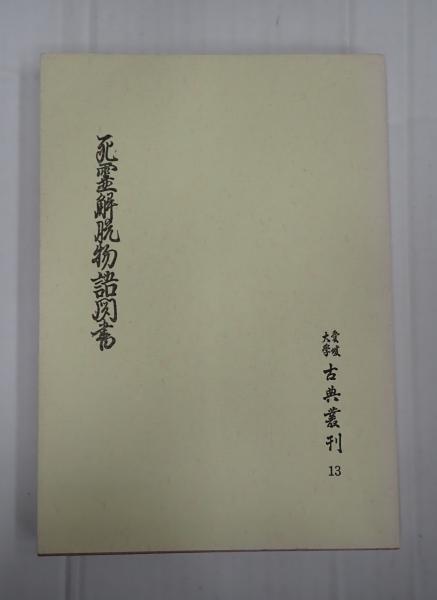 死霊解脱物語聞書
愛媛大学
古典叢刊
13